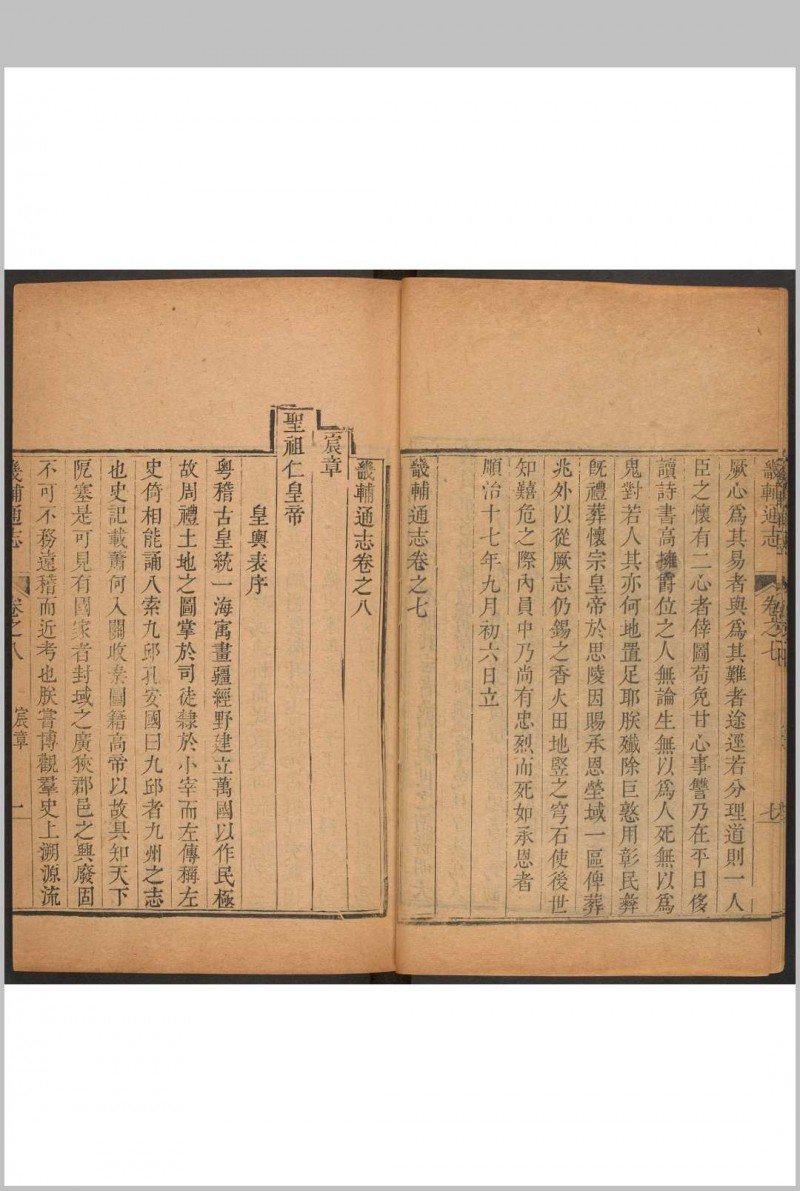 畿輔通志
卷之七
七
厥心爲其易者與爲其難者途逕若分理道則一人
臣之懷有二心者倖圖苟免甘心事讐乃在平日侈
讀詩書高擁爵位之人無論生無以爲人死無以爲
鬼對若人其亦何地置足耶朕殲除巨憝用彰民彝
旣禮葬懷宗皇帝於思陵因賜承恩塋域一區俾葬
兆外以從厥志仍錫之香火田地竪之穹石使後世
知囏危之際內員中乃尚有忠烈而死如承恩者
順治十七年九月初六日立
畿輔通志卷之七
畿輔通志卷之八
宸章
聖祖仁皇帝
皇輿表序
粵稽古皇統一海㝢畫疆經野建立萬國以作民極
故周禮土地之圖掌於司徒隸於小宰而左傳稱左
史倚相能誦八索九邱孔安國曰九邱者九州之志
也史記載蕭何入關收秦圖籍高帝以故具知天下
阨塞是可見有國家者封域之廣狹郡邑之興廢固
不可不務遠稽而近考也朕嘗博觀羣史上溯源流
畿輔通志
卷之八
宸章
一